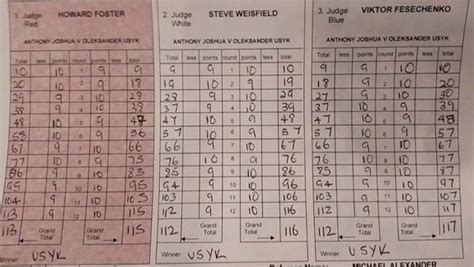 1. Judge HOWARD FOSTER
Red
ANTHONY JOSHUA V OLEKSANDER USYK
Total less points round points less Total
10 10 1 9 9
20 10 2 9 18
29 9 3 10 28
38 9 4 10
48 10 5 9 47
58 10 6 9 56
67 9 7 10 66
77 10 8 9
86 9 9 10 85
95 9 10 10 95
104 9 11 10 105
113 9 12 10 115
113 Grand Total Grand Total 115
Winner: USYK
2. Judge STEVE WEISFIELD
White
ANTHONY JOSHUA V OLEKSANDER USYK
Total less points round points less Total
9 9 1 10 10
19 10 2 9 19
28 9 3 10 29
37 9 4 10 39
47 10 5 9 48
57 10 6 9 57
67 10 7 9 66
76 9 8 10 76
85 9 9 10 86
94 9 10 10 96
103 9 11 10 106
112 9 12 10 116
112 Grand Total Grand Total 116
Winner: USYK
3. Judge VIKTOR FESECHENKO
Blue
ANTHONY JOSHUA V OLEKSANDER USYK
Total less points round points less Total
9 9 1 10 10
18 9 2 10 20
28 10 3 9 29
37 9 4 10 39
47 10 5 9 48
57 10 6 9 57
66 9 7 10 67
76 10 8
85 9 9 10 87
94 9 10 10 97
103 9 11 10 107
112 9 12 10 117
112 Grand Total Grand Total 117
Winner: USYK
MICHAEL ALEXANDER